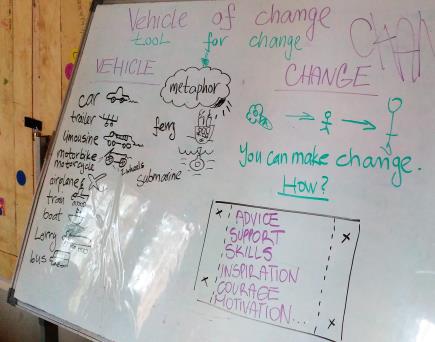 Vehicle of change
tool for change
CHAN
VEHICLE
car
trailer
limousine
motorbike
motorcycle
2 wheels
airplane
tram
boat
Lorry
bus
metaphor
ferry
submarine
CHANGE
You can make change.
How?
ADVICE
SUPPORT
SKILLS
INSPIRATION
COURAGE
MOTIVATION...